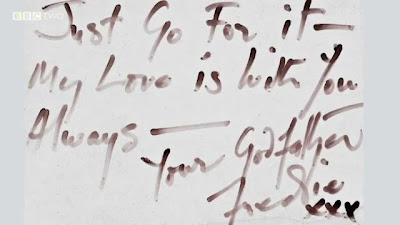 BBC TWO
Just Go For it —
My Love is With You
Always —
Your Godfather
Freddie
xxx